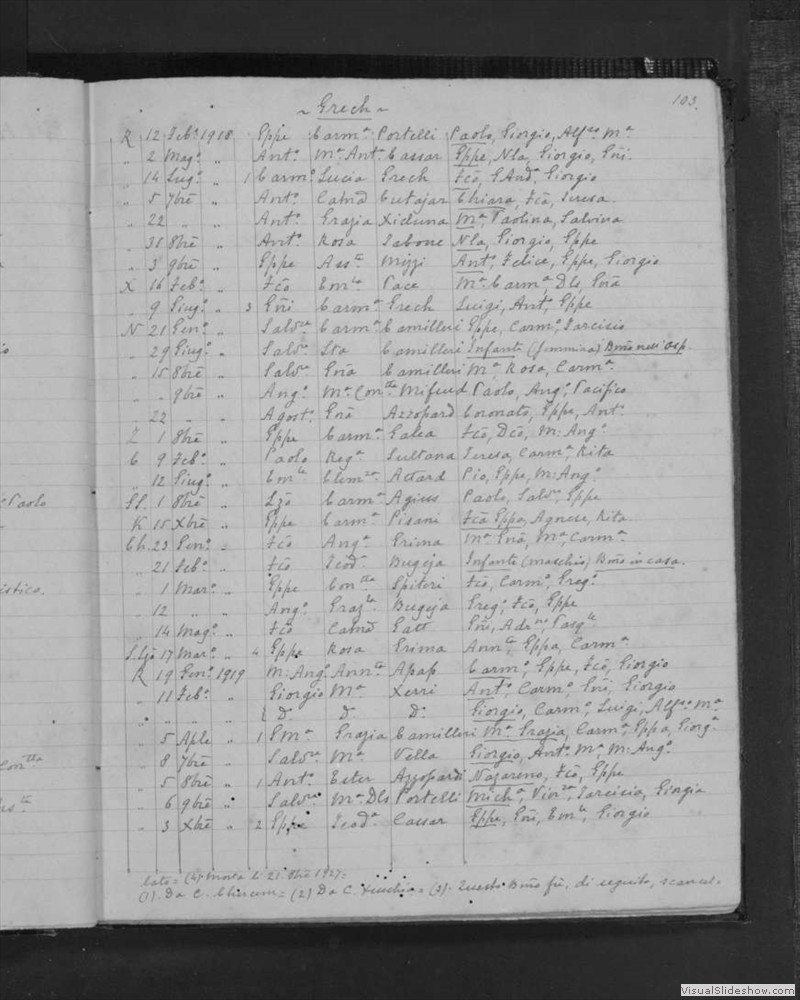 103.
~ Grech ~
R 12 Feb° 1918 Eppe Carmª Portelli Paolo, Giorgio, Alfso Mª
" 2 Magº " Antº Mª Antª Cassar Eppe, Nla, Giorgio, Gñi.
" 14 Lugº " 1 Carmº Lucia Grech Fcõ, G. Andª Giorgio
" 5 7brē " Antº Catnã Cutajar Chiara, Fcõ, Teresa
" 22 " " Antº Grazia Xicluna Mª, Paolina, Salvina
" 31 8brē " Antº Rosa Tabone Nla, Giorgio, Eppe
" 3 9brē " Eppe Assta Mizzi Antº, Felice, Eppe, Giorgio
X 16 Febº " Fcõ Emla Pace Mª Carmª Dls, Gnã
" 9 Giugº " 3 Gñi Carmª Grech Luigi, Antº, Eppe
N 21 Genº " Salvre Carmª Camilleri Eppe, Carmº, Tarcisio
" 29 Giugº " Salvre Sta Camilleri Infante (femmina) Bñō nell' Osp.
" 15 8brē " Salvre Gnã Camilleri Mª Rosa, Carmª
" " 9brē " Angº Mª Contta Mifsud Paolo, Angº, Pacifico
" 22 " " Agostº Gnã Azzopard Coronato, Eppe, Antº
Z 1 8brē " Eppe Carmª Galea Fcõ, Dcõ, M. Angº
C 9 Febº " Paolo Regª Sultana Teresa, Carmª, Rita
" 12 Giugº " Emle Clemza Attard Pio, Eppe, M. Angº
SS. 1 8brē " Lzõ Carmª Agius Paolo, Salvre, Eppe
K 15 Xbrē " Eppe Carmª Pisani Fcã Eppa, Agnese, Rita
Ch. 23 Genº " Fcõ Angª Grima Mª Gnã, Mª, Carmª
" 21 Febº " Fcõ Teodª Bugeja Infante (maschio) Bñō in casa.
" 1 Marº " Eppe Contta Spiteri Fcõ, Carmº, Gregº
" 12 " " Angº Grazla Bugeja Gregº, Fcõ, Eppe
" 14 Magº " Fcõ Catnã Gatt Gñi, Adrno Pasqle
S.Lzõ 17 Marº " 4 Eppe Rosa Grima Annta, Eppa, Carmª
R 19 Genº 1919 M. Angº Annta Apap Carmº, Eppe, Fcõ, Giorgio
" 11 Febº " Giorgio Mª Xerri Antº, Carmº, Gñi, Giorgio
" " " " Dº Dª Dº Giorgio, Carmº, Luigi, Alfso Mª
" 5 Aple " 1 Mª Grazia Camilleri Mª Grazia, Carmª, Eppa, Giorgª
" 8 7brē " Salvre Mª Vella Giorgio, Antº Mª M. Angº
" 5 8brē " 1 Antº Ester Azzopardi Nazareno, Fcõ, Eppe
" 6 9brē " Salvre Mª Dls Portelli Michª, Tarcisia, Giorgia
" 3 Xbrē " 2 Eppe Teodª Cassar Eppe, Gñi, Emle, Giorgio
lato = (4) Morta li 21. 1927 =
(1). Da C. = (2) Da C. = (3). Questo Bñō fù, di seguito, scancel-
Paolo
istico.
Contta
VisualSlideshow.com